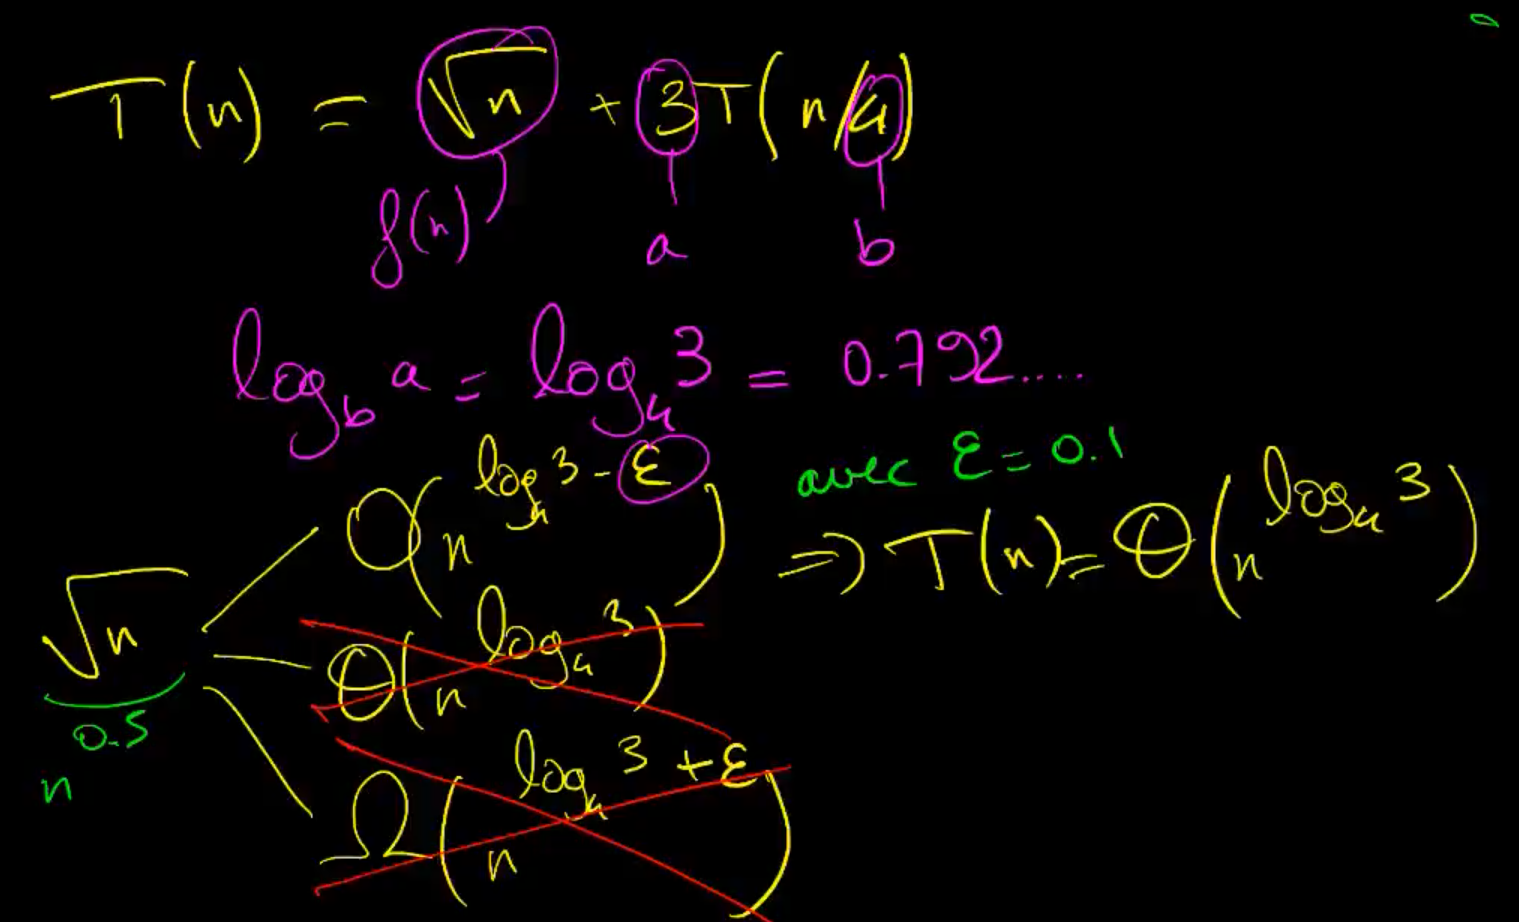 T(n) = √n + 3T(n/4)
f(n) a b
log_b a = log_4 3 = 0.792....
O(n^(log_4 3 - ε)) avec ε = 0.1
⇒ T(n) = Θ(n^(log_4 3))
√n
n^0.5
Θ(n^(log_4 3))
Ω(n^(log_4 3 + ε))